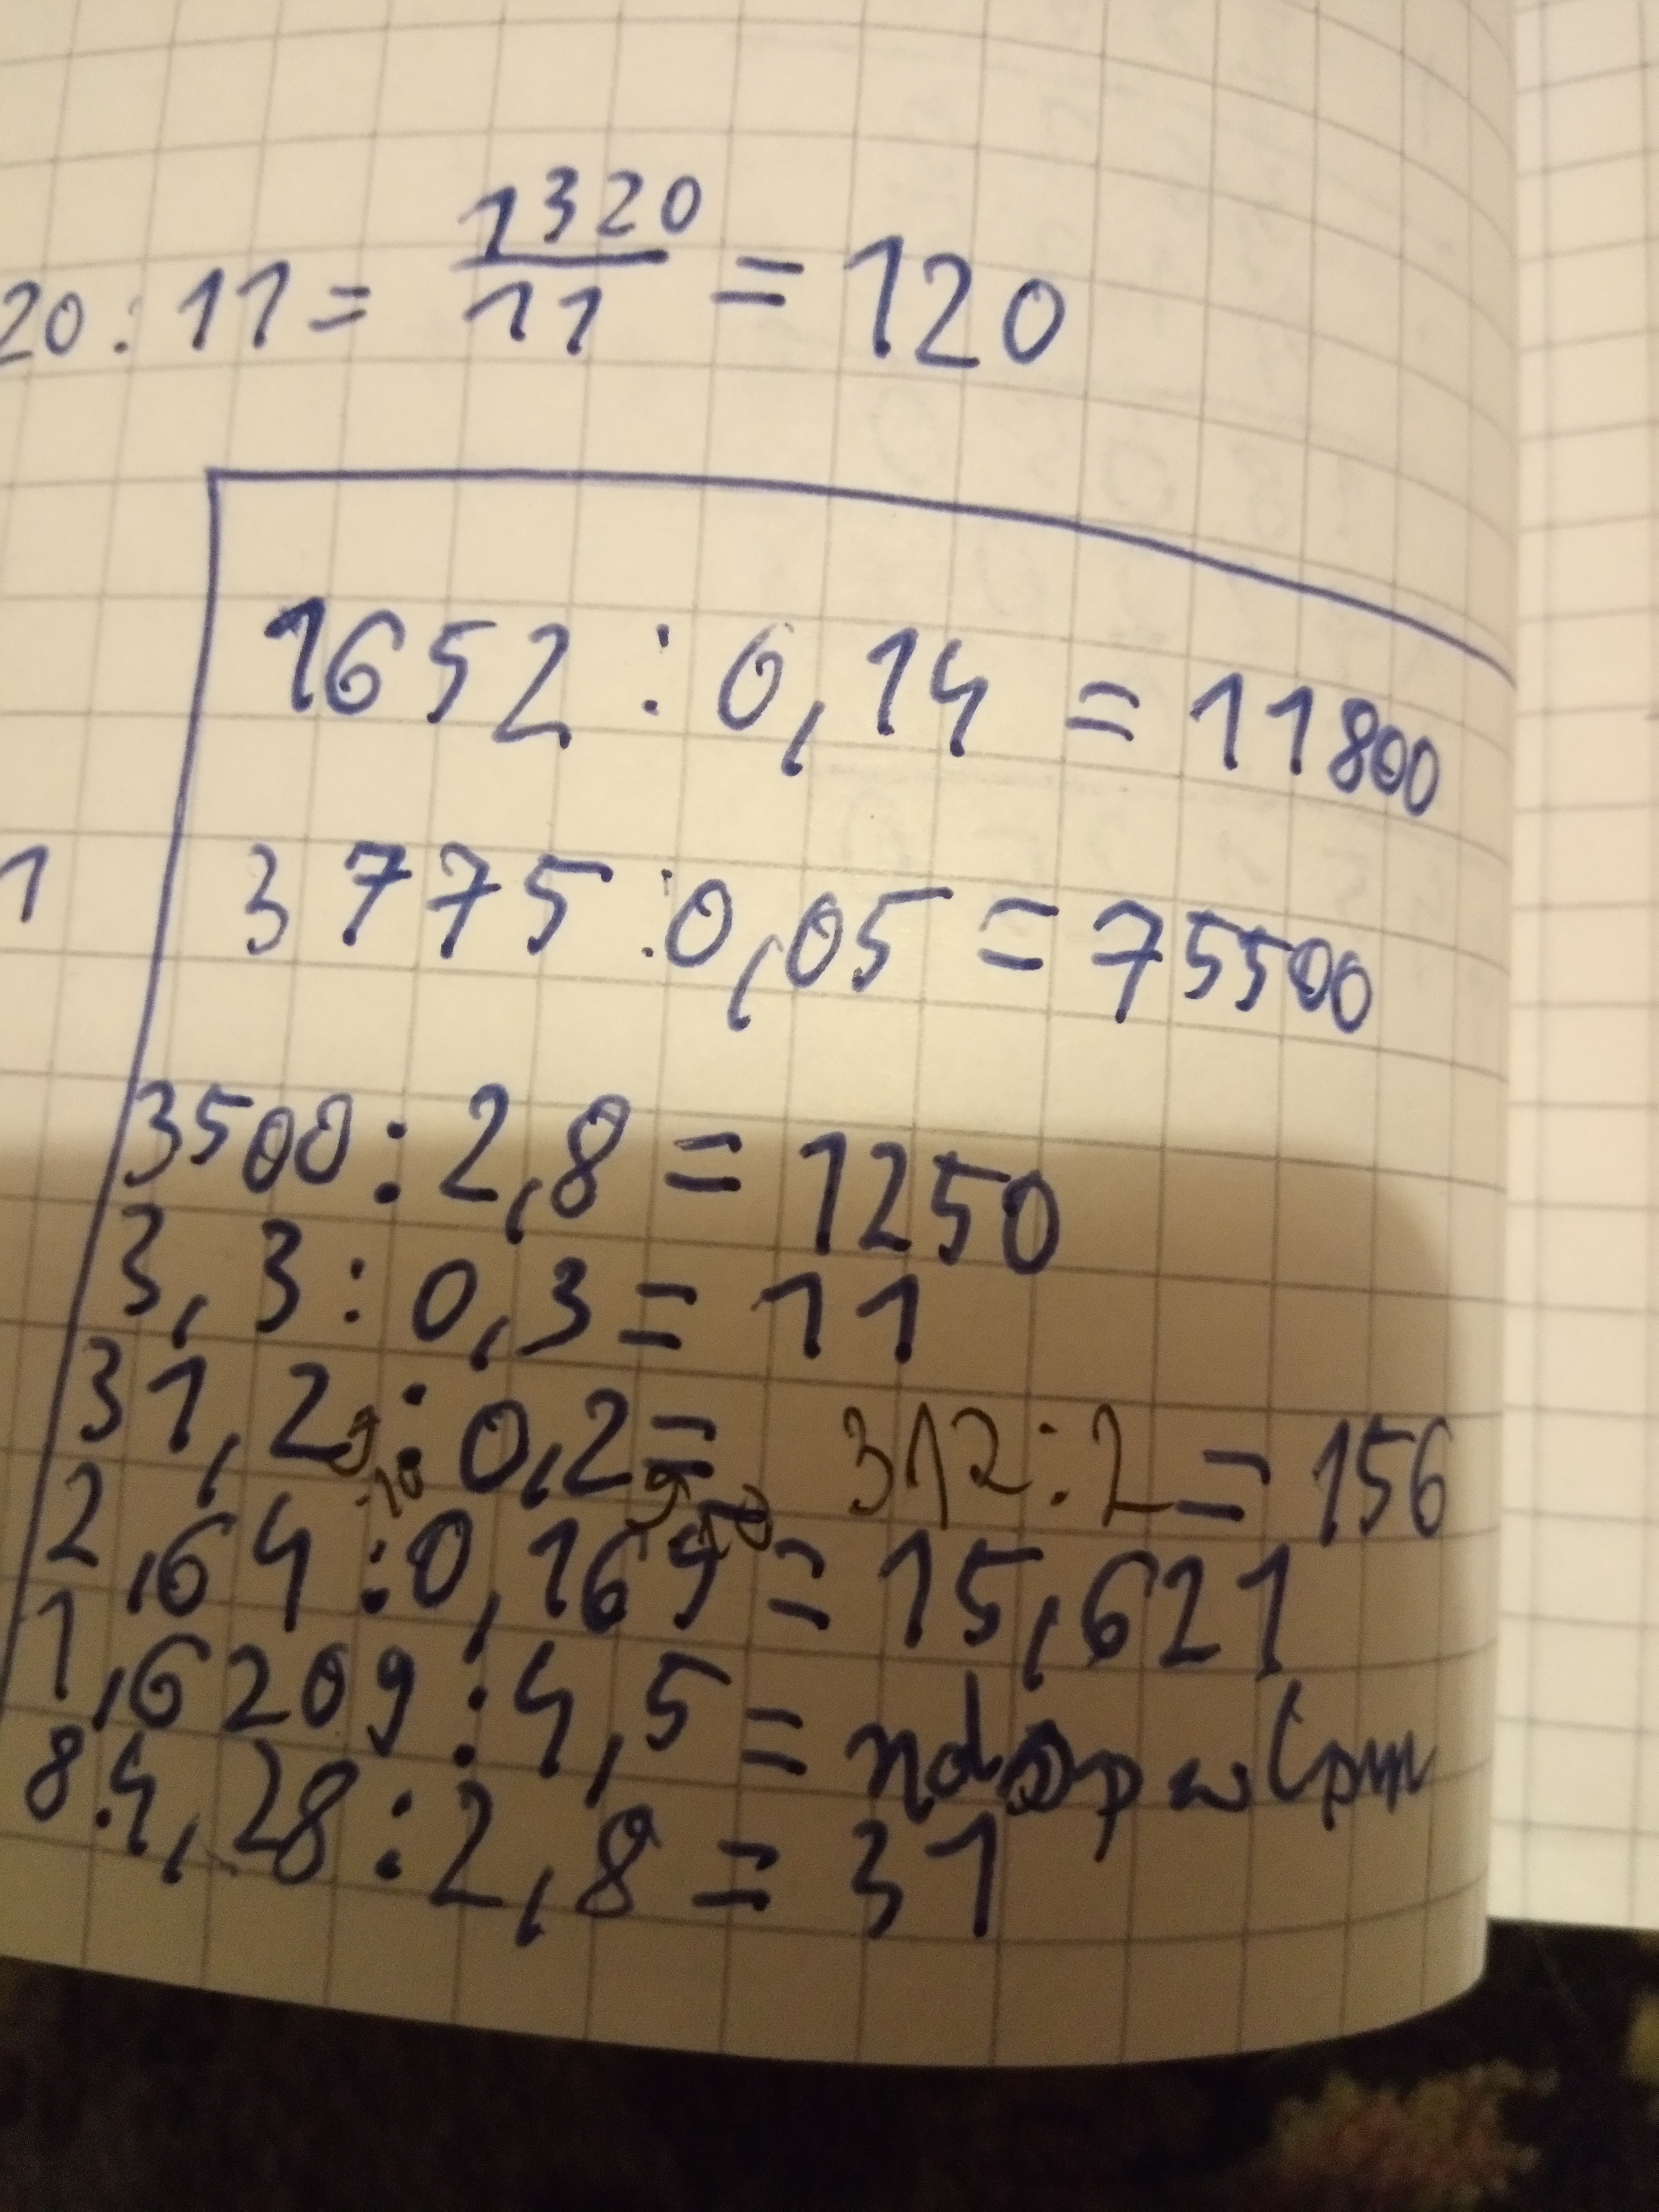 20 : 11 = 1320/11 = 120
1652 : 0,14 = 11800
1
3775 : 0,05 = 75500
3500 : 2,8 = 1250
3,3 : 0,3 = 11
31,2 : 0,2 = 312 : 2 = 156
·10 ·10
2,64 : 0,169 = 15,621
1,6209 : 4,5 =
84,28 : 2,8 = 31